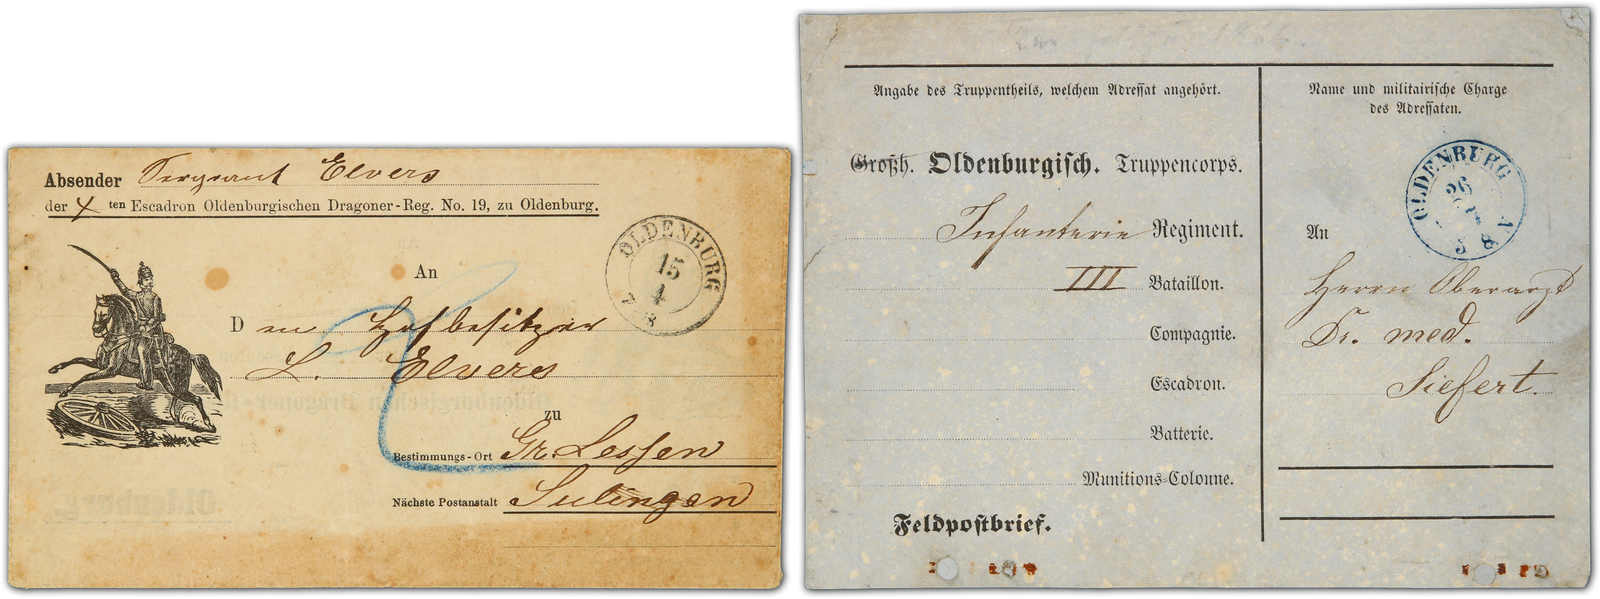 Absender Sergeant Elvers
der 4 ten Escadron Oldenburgischen Dragoner-Reg. No. 19, zu Oldenburg.
OLDENBURG
15
4
An
Dem Hofbesitzer
L. Elvers
zu
Bestimmungs-Ort Gr. Lessen
Nächste Postanstalt Sulingen
Angabe des Truppentheils, welchem Adressat angehört.
Großh. Oldenburgisch. Truppencorps.
Infanterie Regiment.
III Bataillon.
Compagnie.
Escadron.
Batterie.
Munitions-Colonne.
Feldpostbrief.
Name und militairische Charge
des Adressaten.
OLDENBURG
26
An
Herrn Oberarzt
Dr. med.
Siefert.